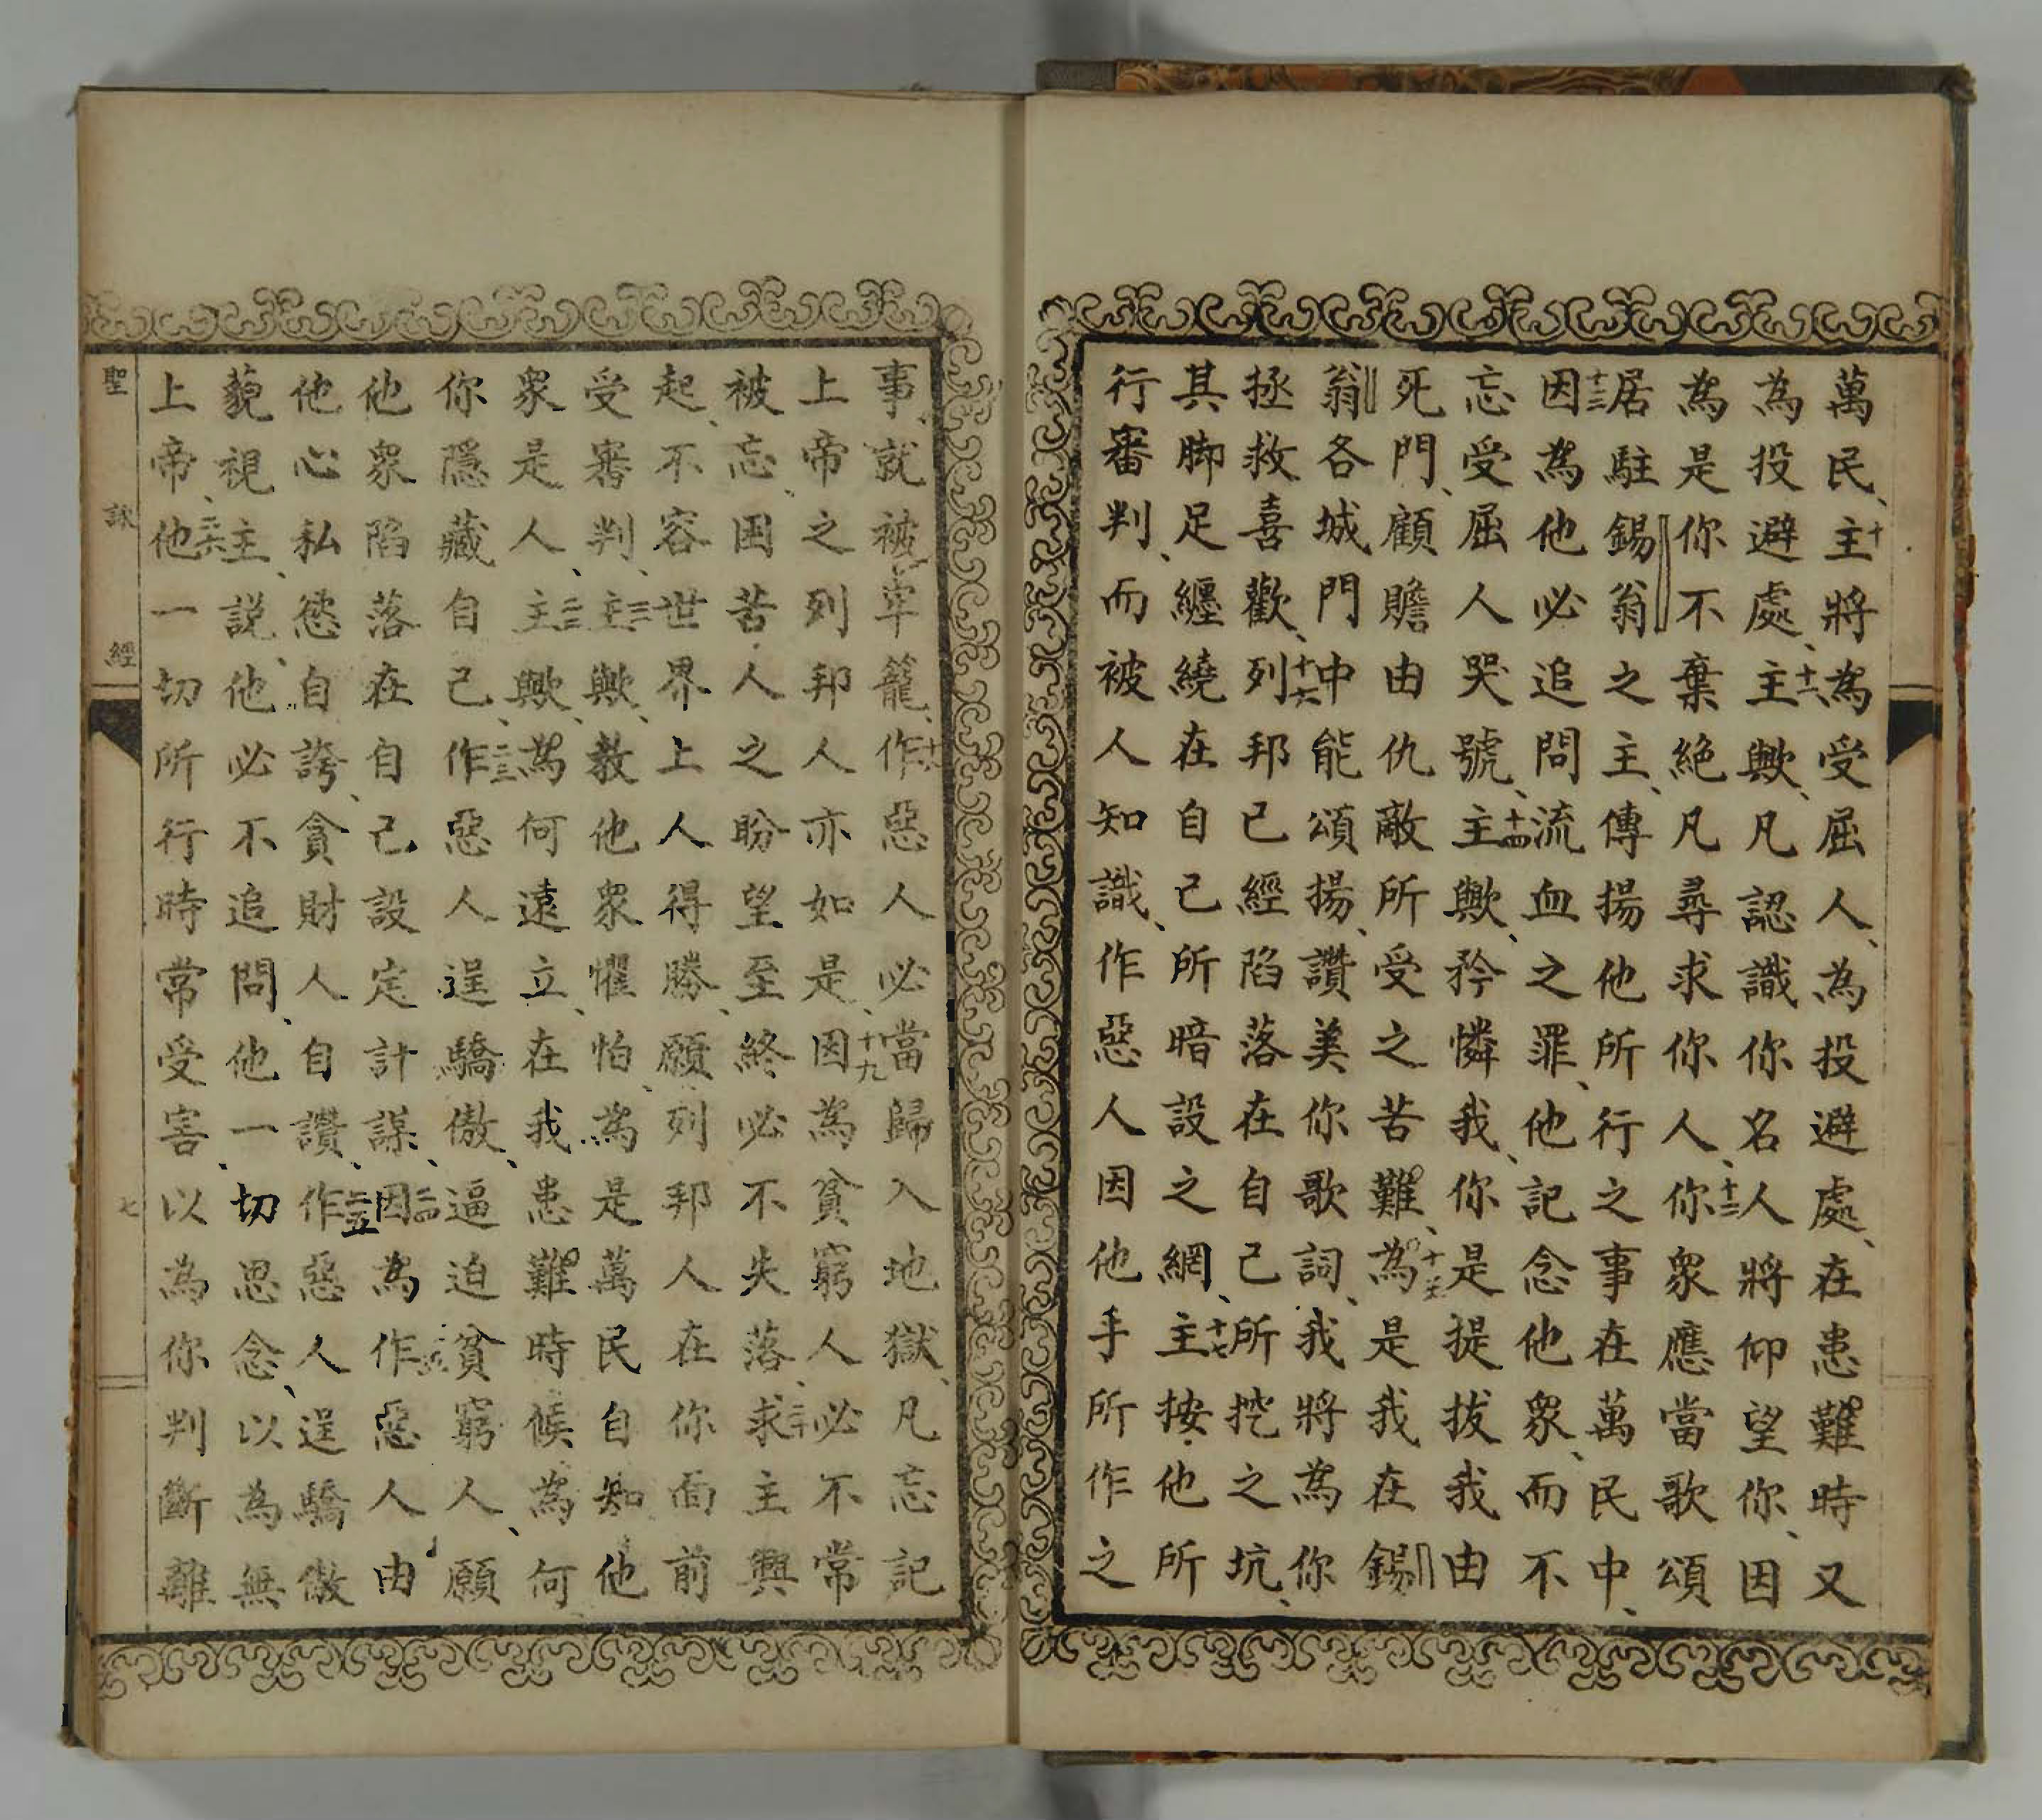 萬民、十主將為受屈人、為投避處、在患難時又
為投避處、十一主歟、凡認識你名人將仰望你、因
為是你不棄絕凡尋求你人、十二你眾應當歌頌
居駐錫翁之主、傳揚他所行之事在萬民中、
十三因為他必追問流血之罪、他記念他眾、而不
忘受屈人哭號、十四主歟、矜憐我、你是提拔我由
死門、顧瞻由仇敵所受之苦難、十五為是我在錫
翁各城門中能頌揚、讚美你歌詞、我將為你
拯救喜歡、十六列邦已經陷落在自己所挖之坑、
其脚足纏繞在自己所暗設之網、十七主按他所
行審判、而被人知識、作惡人因他手所作之
事、就被牢籠、十八作惡人必當歸入地獄、凡忘記
上帝之列邦人亦如是、十九因為貧窮人必不常
被忘、困苦人之盼望至終必不失落、二十求主興
起、不容世界上人得勝、願列邦人在你面前
受審判、二一主歟、教他眾懼怕、為是萬民自知他
眾是人、二二主歟、為何遠立、在我患難時候為何
你隱藏自己、二三作惡人逞驕傲、逼迫貧窮人、願
他眾陷落在自己設定計謀、二四因為作惡人由
他心私慾自誇、貪財人自讚、二五作惡人逞驕傲
藐視主、説、他必不追問、他一切思念、以為無
上帝、二六他一切所行時常受害、以為你判斷離
聖詠經 七